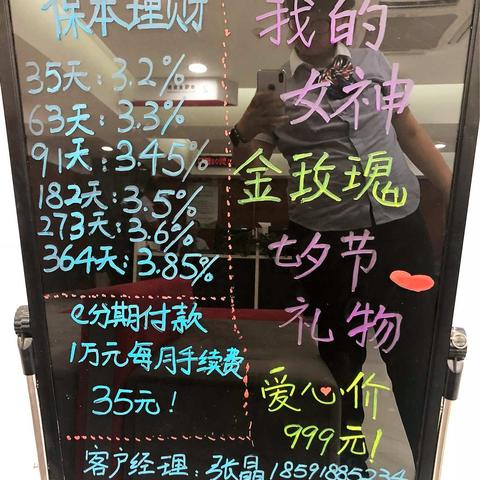 保本理财
35天:3.2%
63天:3.3%
91天:3.45%
182天:3.5%
273天:3.6%
364天:3.85%
e分期付款
1万元每月手续费
35元!
我的
女神
金玫瑰
七夕节
礼物
爱心价
999元!
客户经理:张晶18591885234